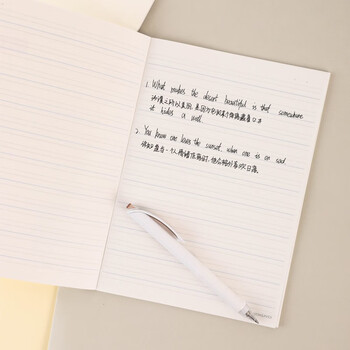 1. What makes the desert beautiful is that somewhere
沙漠之所以美丽,是因为它的某个角落藏着一口井
it hides a well.
2. You know one loves the sunset, when one is so sad
你知道当一个人情绪低落时,他会格外喜欢日落.